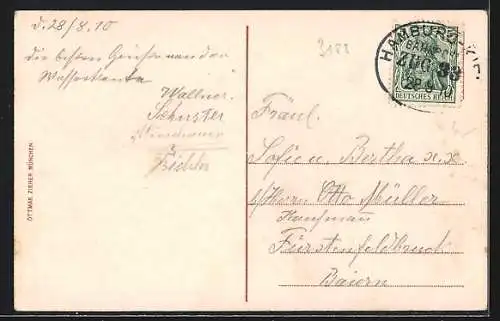 d. 28/8.10
die besten Grüsse von der
Wasserkante
Wallner
Schuster
Richter
3188
OTTMAR ZIEHER MÜNCHEN
HAMBURG-
BAHNP
ZUG 33
28 8 10
DEUTSCHES REICH
Fräul.
Sofie u. Bertha
Herrn Otto Müller
Kaufmann
Fürstenfeldbruck
Baiern